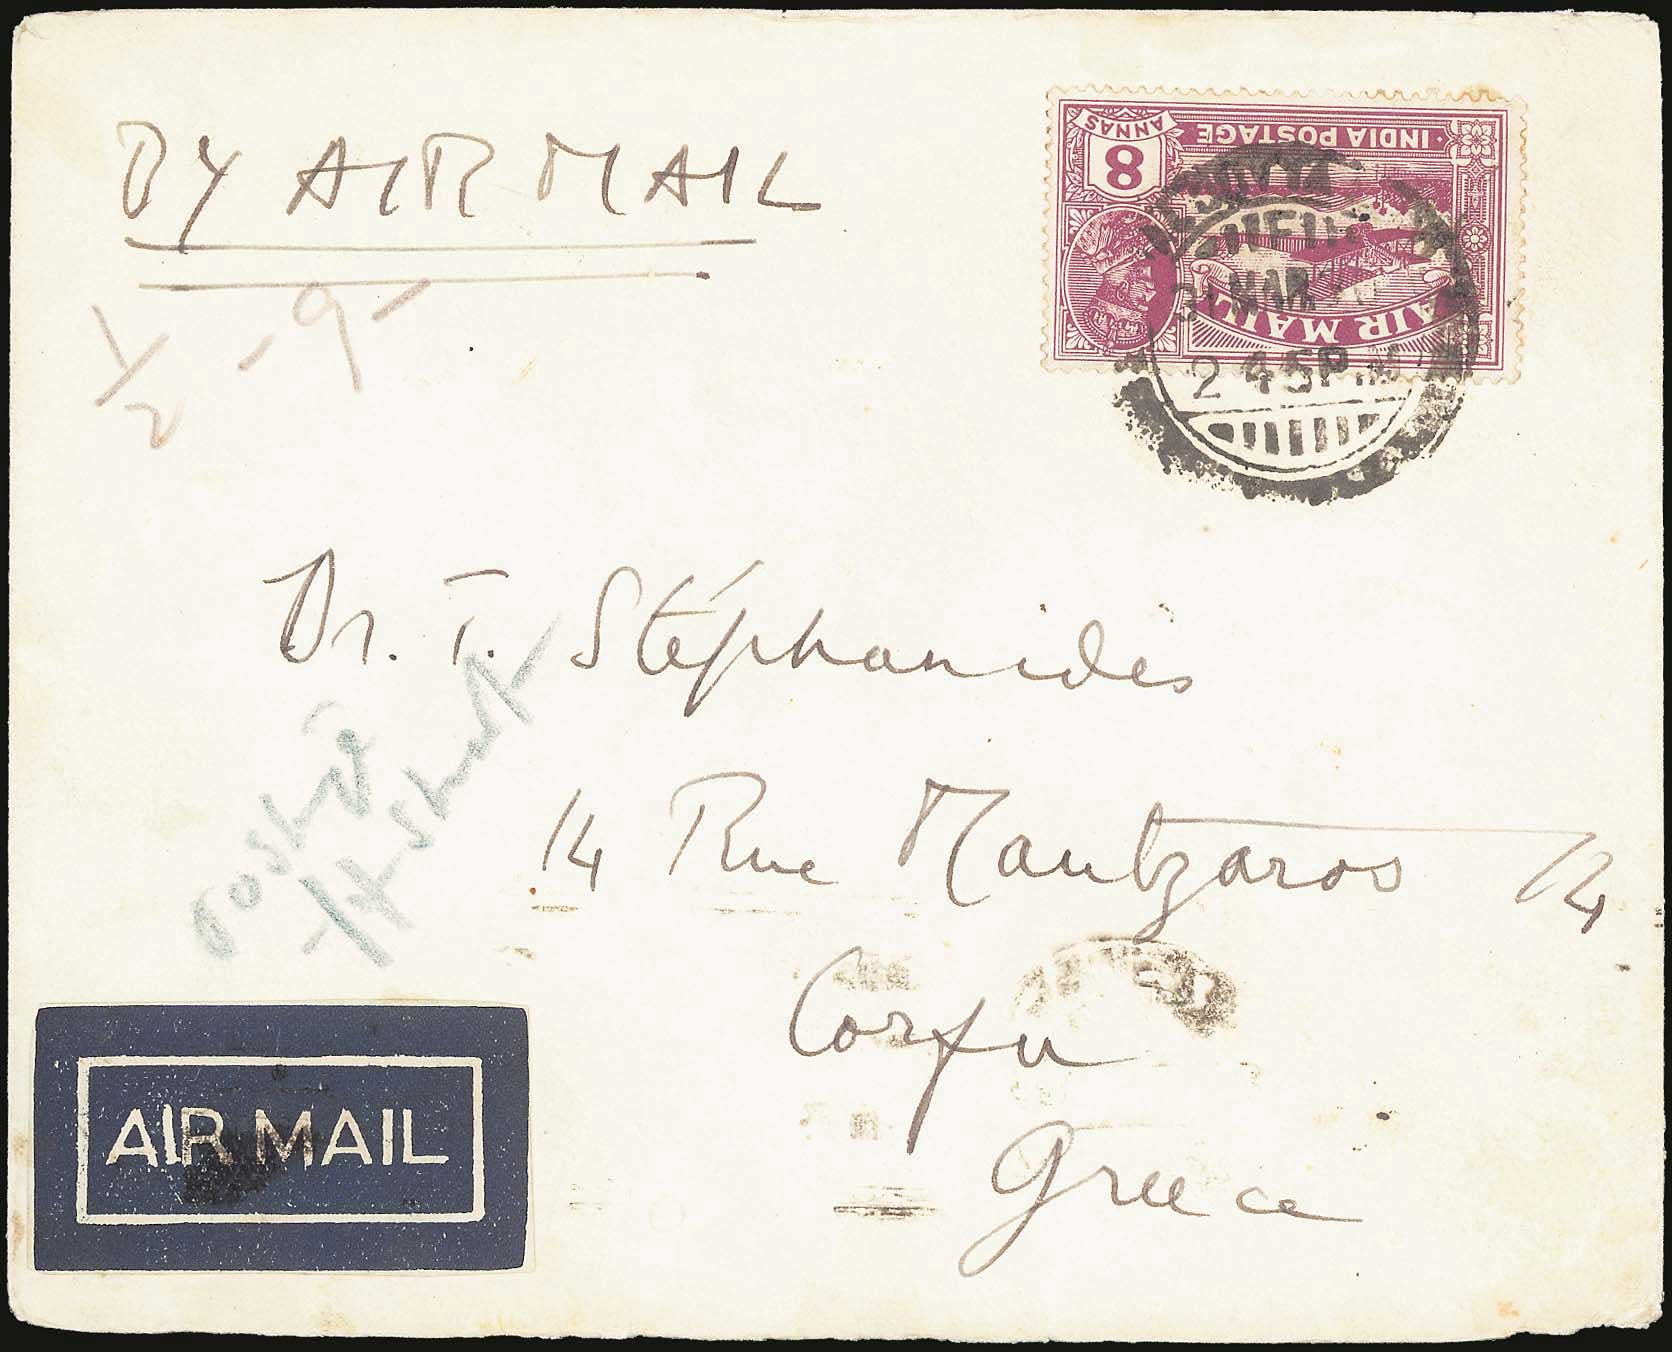 BY AIR MAIL
INDIA POSTAGE
8
ANNAS
AIR MAIL
31 MAR
2 45 P.M
1/2 - 9 -
Dr. T. Stéphanides
14 Rue Mantzaros 14
Corfu
Greece
AIR MAIL